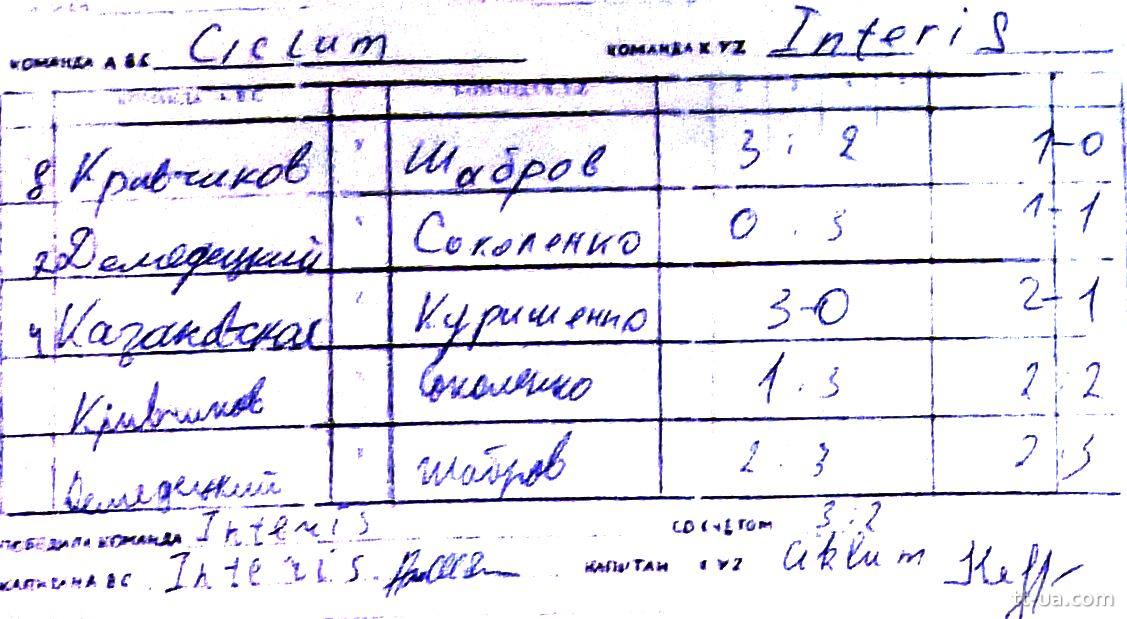 КОМАНДА АВС Ciclum КОМАНДА XYZ Interis
8 Кривчиков Шабров 3 : 2 1-0
Демедецкий Соколенко 0 . 3 1-1
4 Казаковская Куришенко 3-0 2-1
Кривчиков Соколенко 1 . 3 2 . 2
Демедецкий Шабров 2 . 3 2 . 3
ПОБЕДИЛА КОМАНДА Interis СО СЧЕТОМ 3 : 2
КАПИТАН АВС Interis КАПИТАН XYZ Ciklum
tt-ua.com